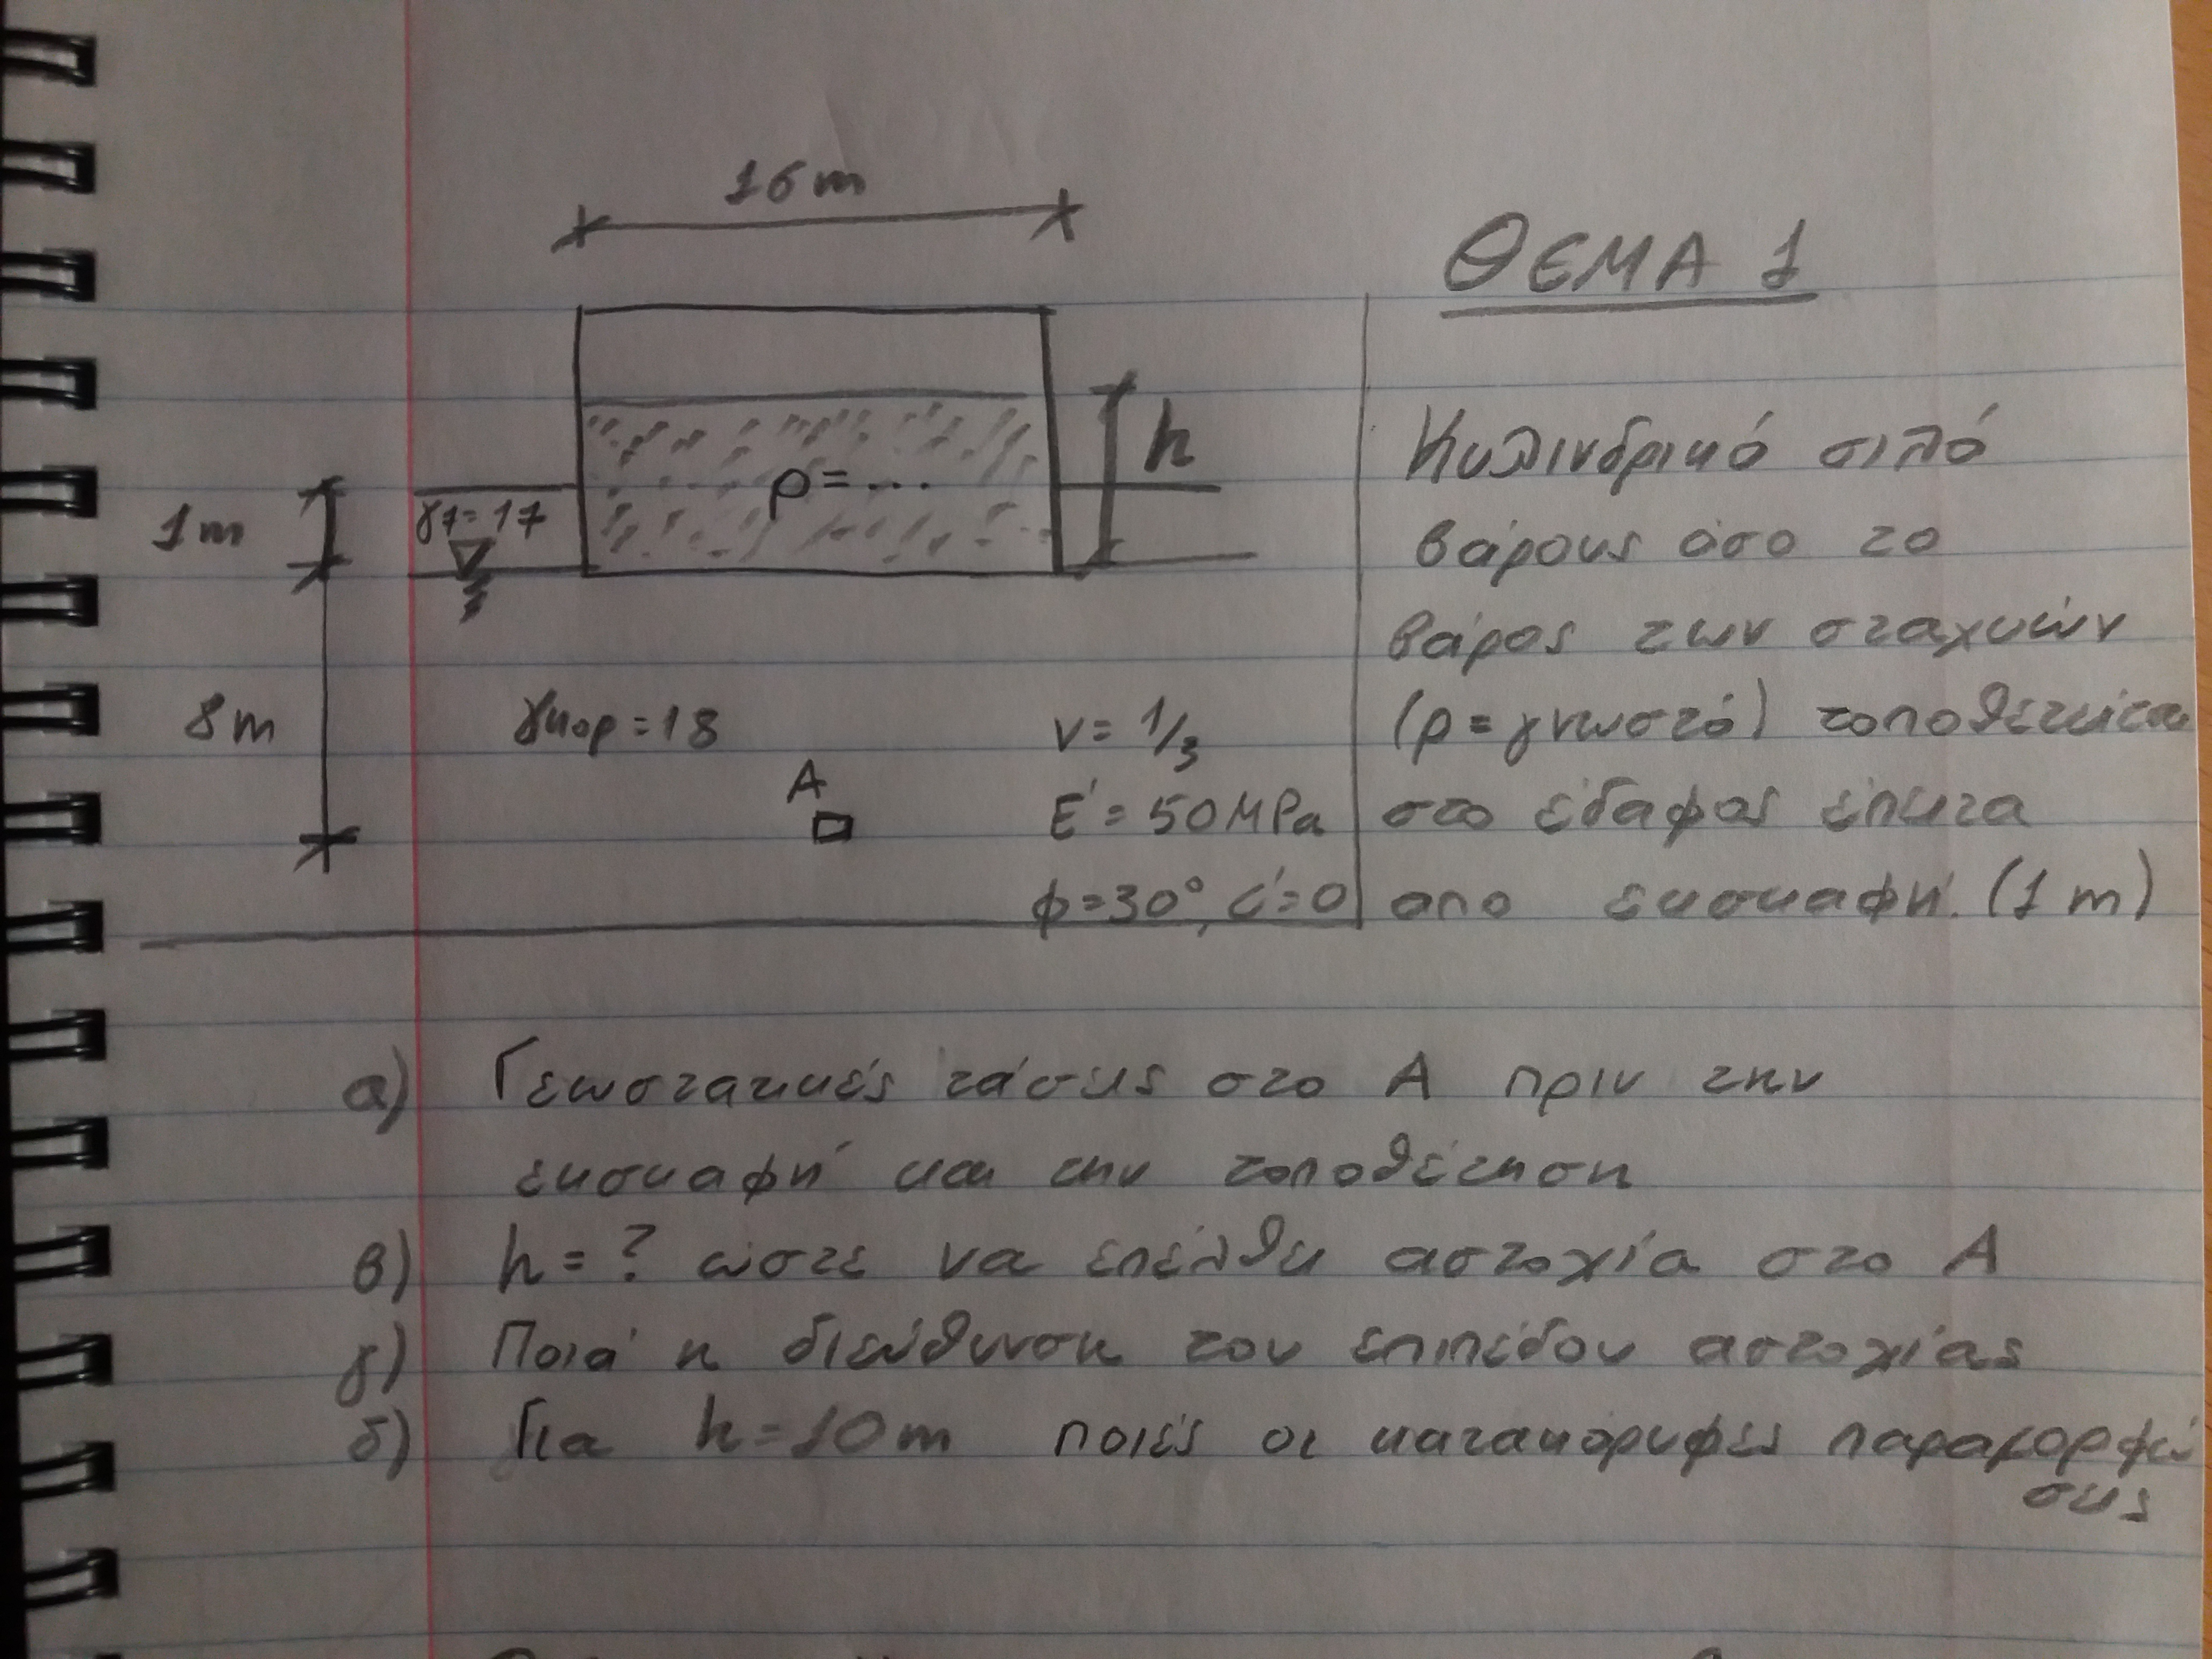 16m
ΘΕΜΑ 1
h
ρ=...
1m
γ1=17
Κυλινδρικό σιλό
βάρους όσο το
βάρος των σταχυών
(ρ=γνωστό) τοποθετείται
στο έδαφος έπειτα
απο εκσκαφή. (1m)
8m
γκορ=18
ν=1/3
Α
E'=50MPa
φ=30°, c'=0
α) Γεωστατικές τάσεις στο Α πριν την
εκσκαφή και την τοποθέτηση
β) h=? ώστε να επέλθει αστοχία στο Α
γ) Ποιά η διεύθυνση του επιπέδου αστοχίας
δ) Για h=10m ποιές οι κατακόρυφες παραμορφώ
σεις